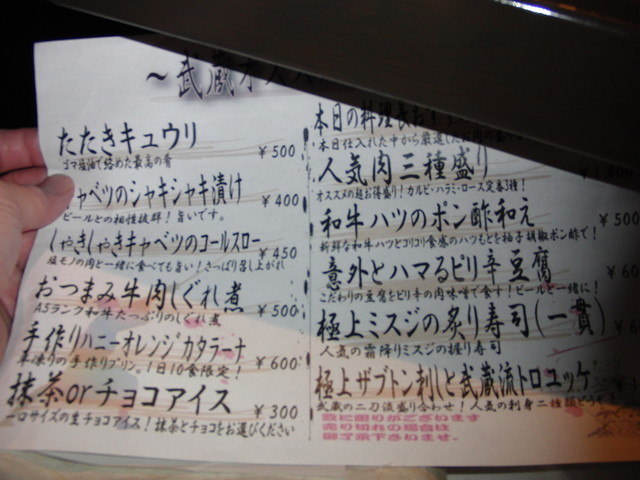 ～武蔵オスス
たたきキュウリ ¥500
ゴマ塩油で絡めた最高の肴
キャベツのシャキシャキ漬け ¥400
ビールとの相性抜群！旨いです。
しゃきしゃきキャベツのコールスロー ¥450
塩モノの肉と一緒に食べても旨い！さっぱり召し上がれ
おつまみ牛肉しぐれ煮 ¥500
A5ランク和牛たっぷりのしぐれ煮
手作りハニーオレンジカタラーナ ¥600
凍りの手作りプリン。1日10食限定！
抹茶orチョコアイス ¥300
一口サイズの生チョコアイス！抹茶とチョコをお選びください
本日の料理長お
本日仕入れた中から厳選したお肉の
人気肉三種盛り
オススメの超お得盛り！カルビ・ハラミ・ロース定番3種！
和牛ハツのポン酢和え ¥500
新鮮な和牛ハツとコリコリ食感のハツもとを柚子胡椒ポン酢で！
意外とハマるピリ辛豆腐 ¥60
こだわりの豆腐をピリ辛の肉味噌で食す！ビールと一緒に！
極上ミスジの炙り寿司（一貫）
人気の霜降りミスジの握り寿司
極上ザブトン刺しと武蔵流トロユッケ
武蔵の二刀流盛り合わせ！人気の刺身二種類どうぞ！
数に限りがございます
売り切れの場合は
御了承下さいませ。